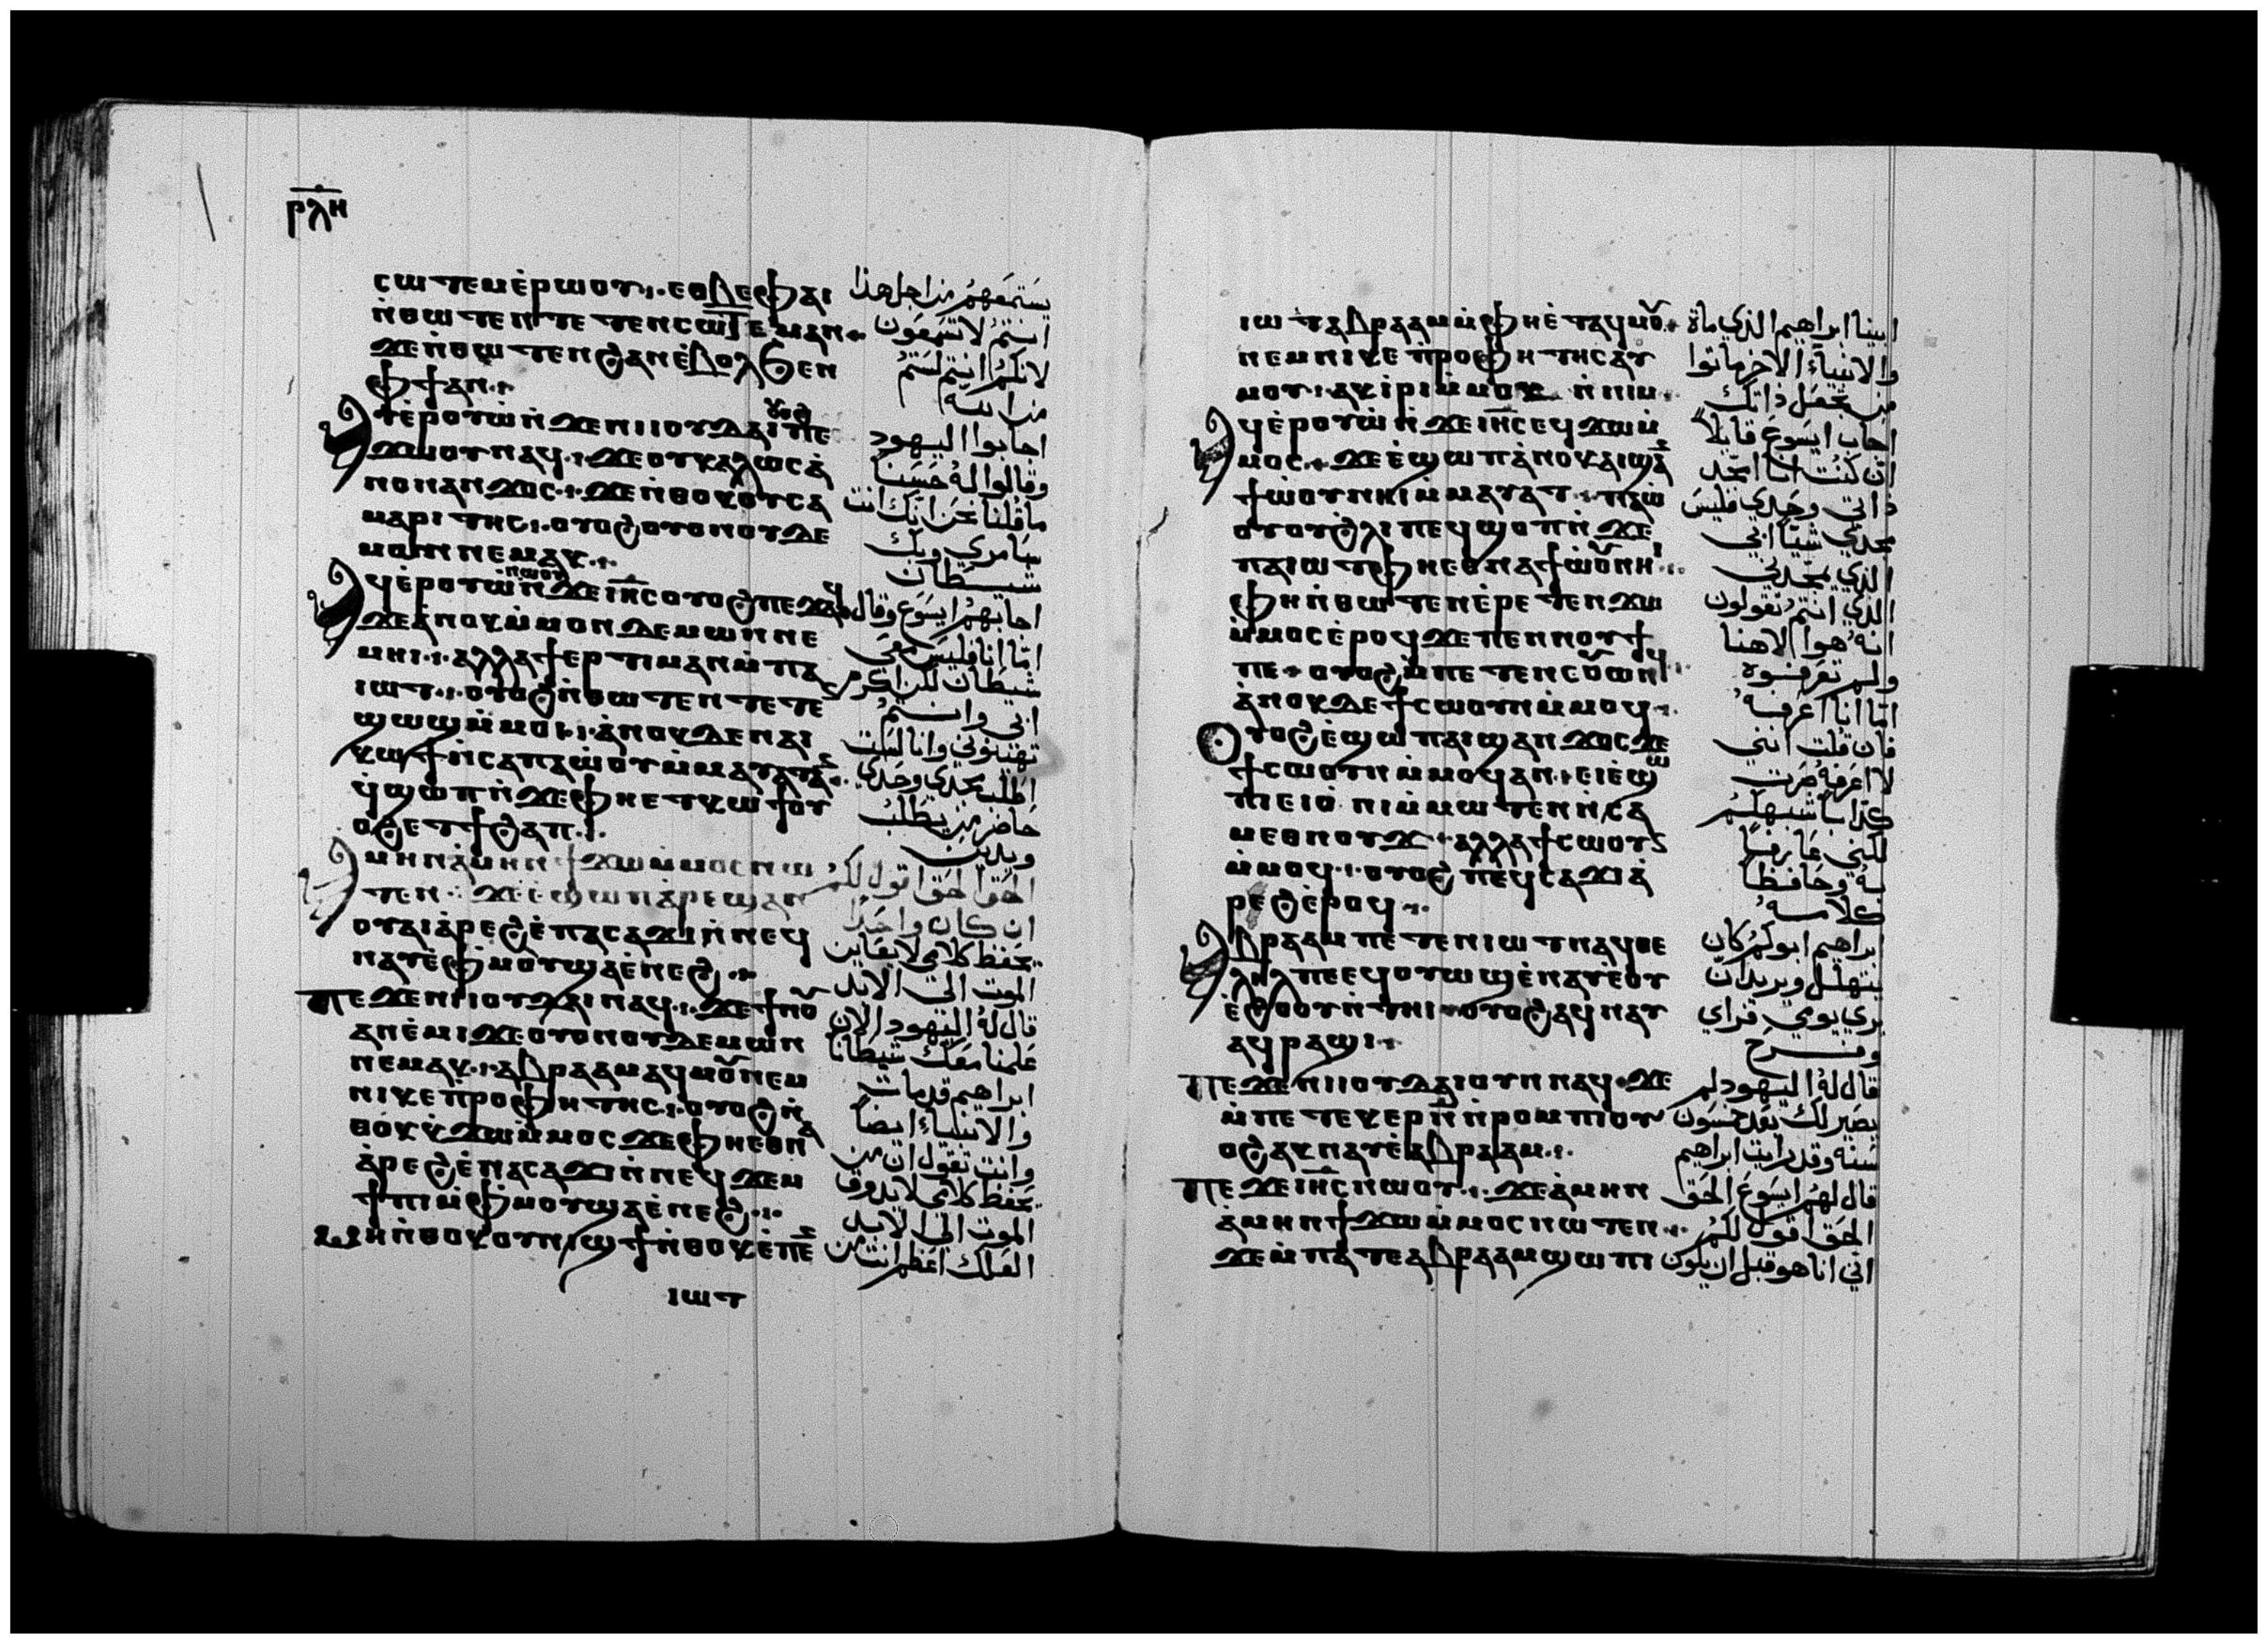 ⲣⲗⲏ
ⲥⲱⲧⲉⲙⲉ̀ⲣⲱⲟⲩ·:· ⲉⲑⲃⲉⲫⲁⲓ
ⲛ̀ⲑⲱⲧⲉⲛⲧⲉⲧⲉⲛⲥⲱⲧⲉⲙⲁⲛ·:·
ϫⲉⲛ̀ⲑⲱⲧⲉⲛϩⲁⲛⲉ̀ⲃⲟⲗϧⲉⲛ
ⲫϯⲁⲛ·:·
ⲁⲩⲉ̀ⲣⲟⲩⲱ̀ⲛ̀ϫⲉⲛⲓⲓⲟⲩⲇⲁⲓⲟⲩⲟϩⲡⲉ
ϫⲱⲟⲩⲛⲁϥ·:·ϫⲉⲟⲩⲕⲁⲗⲱⲥⲁ̀
ⲛⲟⲛⲁⲛϫⲟⲥ·:·ϫⲉⲛ̀ⲑⲟⲕⲟⲩⲥⲁ
ⲙⲁⲣⲓⲧⲏⲥ·:·ⲟⲩⲟϩⲟⲩⲟⲛⲟⲩⲇⲉ
ⲙⲱⲛⲛⲉⲙⲁⲕ·:·
ⲁϥⲉ̀ⲣⲟⲩⲱ̀ⲛⲱⲟⲩⲛ̀ϫⲉⲓⲏⲥⲟⲩⲟϩⲡⲉϫⲁϥ
ϫⲉⲁ̀ⲛⲟⲕⲙ̀ⲙⲟⲛⲇⲉⲙⲱⲛⲛⲉ
ⲙⲏⲓ·:·ⲁⲗⲗⲁϯⲉⲣⲧⲓⲙⲁⲛⲙ̀ⲡⲁ
ⲓⲱⲧ·:·ⲟⲩⲟϩⲛ̀ⲑⲱⲧⲉⲛⲧⲉⲧⲉ
ϣⲱϣⲙ̀ⲙⲟⲓ·:·ⲁ̀ⲛⲟⲕⲇⲉⲛⲁⲓ
ⲕⲱϯⲛ̀ⲥⲁⲡⲁⲱ̀ⲟⲩⲙ̀ⲙⲁⲩⲁⲧ·:·
ϥ̀ϣⲱⲡⲛ̀ϫⲉⲫⲏⲉⲧⲕⲱϯⲟⲩ
ⲟϩⲉⲧϯϩⲁⲡ·:·
ⲁⲙⲏⲛⲁ̀ⲙⲏⲛϯϫⲱⲙ̀ⲙⲟⲥⲛⲱ
ⲧⲉⲛ·:·ϫⲉⲉ̀ϣⲱⲡⲁ̀ⲣⲉϣⲁⲛ
ⲟⲩⲁⲓⲁ̀ⲣⲉϩⲉ̀ⲡⲁⲥⲁϫⲓⲛ̀ⲛⲉϥ
ⲛⲁⲩⲉ̀ⲫⲙⲟⲩϣⲁⲉ̀ⲛⲉϩ·:·
ⲡⲉϫⲉⲛⲓⲓⲟⲩⲇⲁⲓⲛⲁϥ·:·ϫⲉϯⲛⲟⲩ
ⲁⲛⲉ̀ⲙⲓϫⲉⲟⲩⲟⲛⲟⲩⲇⲉⲙⲱⲛ
ⲛⲉⲙⲁⲕ·:·ⲁⲃⲣⲁⲁⲙⲁϥⲙⲟⲩⲛⲉⲙ
ⲛⲓⲕⲉⲡ̀ⲣⲟⲫⲏⲧⲏⲥ·:·ⲟⲩⲟϩⲛ̀
ⲑⲟⲕⲕ̀ϫⲱⲙ̀ⲙⲟⲥϫⲉⲫⲏⲉⲑⲛⲁ
ⲁ̀ⲣⲉϩⲉ̀ⲡⲁⲥⲁϫⲓⲛ̀ⲛⲉϥϫⲉⲙ
ϯⲡⲓⲙ̀ⲫⲙⲟⲩϣⲁⲉ̀ⲛⲉϩ·:·
ⲙⲏⲛ̀ⲑⲟⲕⲟⲩⲛⲓϣϯⲛ̀ⲑⲟⲕⲉ̀ⲡⲉ
ⲓⲱⲧ
يستمعهم من اجل هذا
انتم لا تسمعون
لانكم انتم لستم
من الله
اجابوا اليهود
وقالوا له حسنا
ما قلنا نحن انك انت
سامري وبك
شيطان
اجابهم ايسوع وقال
اما انا فليس معي
شيطان لكن اكرم
ابي وانتم
تهينوني وانا لست
اطلب مجدي وحدي
حاضر من يطلب
ويدين
الحق الحق اقول لكم
ان كان واحدا
يحفظ كلامي لا يعاين
الموت الى الابد
قال له اليهود الان
علمنا معك شيطانا
ابراهيم قد مات
والانبياء ايضا
وانت تقول ان من
يحفظ كلامي لا يذوق
الموت الى الابد
العلك اعظم انت من
ⲓⲱⲧⲁⲃⲣⲁⲁⲙⲙ̀ⲫⲏⲉ̀ⲧⲁϥⲙⲟⲩ·:·
ⲛⲉⲙⲛⲓⲕⲉⲡ̀ⲣⲟⲫⲏⲧⲏⲥⲁⲩ
ⲙⲟⲩ·ⲁⲕⲓ̀ⲣⲓⲙ̀ⲙⲟⲕ ⲛ̀ⲛⲓⲙ·
ⲁϥⲉ̀ⲣⲟⲩⲱ̀ⲛ̀ϫⲉⲓⲏⲥⲉϥϫⲱⲙ̀
ⲙⲟⲥ·:·ϫⲉⲉ̀ϣⲱⲡⲁ̀ⲛⲟⲕⲁⲓϣⲁⲛ
ϯⲱ̀ⲟⲩⲛⲏⲓⲙ̀ⲙⲁⲩⲁⲧ·:·ⲡⲁⲱ̀
ⲟⲩⲟⲩϩ̀ⲗⲓⲡⲉϥϣⲟⲡⲛ̀ϫⲉ
ⲡⲁⲓⲱⲧⲫⲏⲉⲑⲛⲁϯⲱ̀ⲟⲩⲛⲏⲓ·:·
ⲫⲏⲛ̀ⲑⲱⲧⲉⲛⲉ̀ⲣⲉⲧⲉⲛϫⲱ
ⲙ̀ⲙⲟⲥⲉ̀ⲣⲟϥϫⲉⲡⲉⲛⲛⲟⲩϯ
ⲡⲉ·:·ⲟⲩⲟϩⲙ̀ⲡⲉⲧⲉⲛⲥⲟⲩⲱⲛϥ·:·
ⲁ̀ⲛⲟⲕⲇⲉϯⲥⲱⲟⲩⲛⲙ̀ⲙⲟϥ·:·
ⲟⲩⲟϩⲉ̀ϣⲱⲡⲁⲓϣⲁⲛϫⲟⲥϫⲉ
ϯⲥⲱⲟⲩⲛⲙ̀ⲙⲟϥⲁⲛ·:·ⲉⲓⲉ̀ϣⲱ
ⲡⲓⲉⲓⲟ̀ⲛⲓⲙ̀ⲙⲱⲧⲉⲛⲛ̀ⲥⲁ
ⲙⲉⲑⲛⲟⲩϫ·:·ⲁⲗⲗⲁϯⲥⲱⲟⲩⲛ
ⲙ̀ⲙⲟϥ·:·ⲟⲩⲟϩⲡⲉϥⲥⲁϫⲓⲁ̀
ⲣⲉϩⲉ̀ⲣⲟϥ·:·
ⲁⲃⲣⲁⲁⲙⲡⲉⲧⲉⲛⲓⲱⲧⲛⲁϥⲑⲉ
ⲗⲏⲗⲡⲉⲉϥⲟⲩⲱϣⲉ̀ⲛⲁⲩⲉ̀ⲟⲩ
ⲉ̀ϩⲟⲟⲩⲛ̀ⲧⲏⲓ·:·ⲟⲩⲟϩⲁϥⲛⲁⲩ
ⲁϥⲣⲁϣⲓ·:·
ⲡⲉϫⲉⲛⲓⲓⲟⲩⲇⲁⲓⲟⲩⲛⲛⲁϥ·ϫⲉ
ⲙ̀ⲡⲉⲧⲉⲕⲉⲣⲛ̅ⲛ̀ⲣⲟⲙⲡⲓⲟⲩ
ⲟϩⲁⲕⲛⲁⲩⲉ̀ⲁⲃⲣⲁⲁⲙ·:·
ⲡⲉϫⲉⲓⲏⲥⲛⲱⲟⲩ·:·ϫⲉⲁ̀ⲙⲏⲛ
ⲁ̀ⲙⲏⲛϯϫⲱⲙ̀ⲙⲟⲥⲛⲱⲧⲉⲛ·:·
ϫⲉⲙ̀ⲡⲁⲧⲉⲁⲃⲣⲁⲁⲙϣⲱⲡⲓ
ابينا ابراهيم الذي ماة
والانبياء الاخر ماتوا
من تجعل ذاتك
اجاب ايسوع قايلا
ان كنت انا امجد
ذاتي وحدي فليس
مجدي شيئا ابي
الذي يمجدني
الذي انتم تقولون
انه هوا الاهنا
ولم تعرفوه
اما انا اعرفه
فان قلت انني
لا اعرفه صرت
كذابا شبهكم
لكني عارفا
به وحافظا
كلامه
ابراهيم ابوكم كان
يتهلل ويريد ان
يري يومي فراي
وفرح
قال له اليهود لم
يصير لك بعد خمسون
سنه وقد رايت ابراهيم
قال لهم ايسوع الحق
الحق اقول لكم
اني انا هو قبل ان يكون